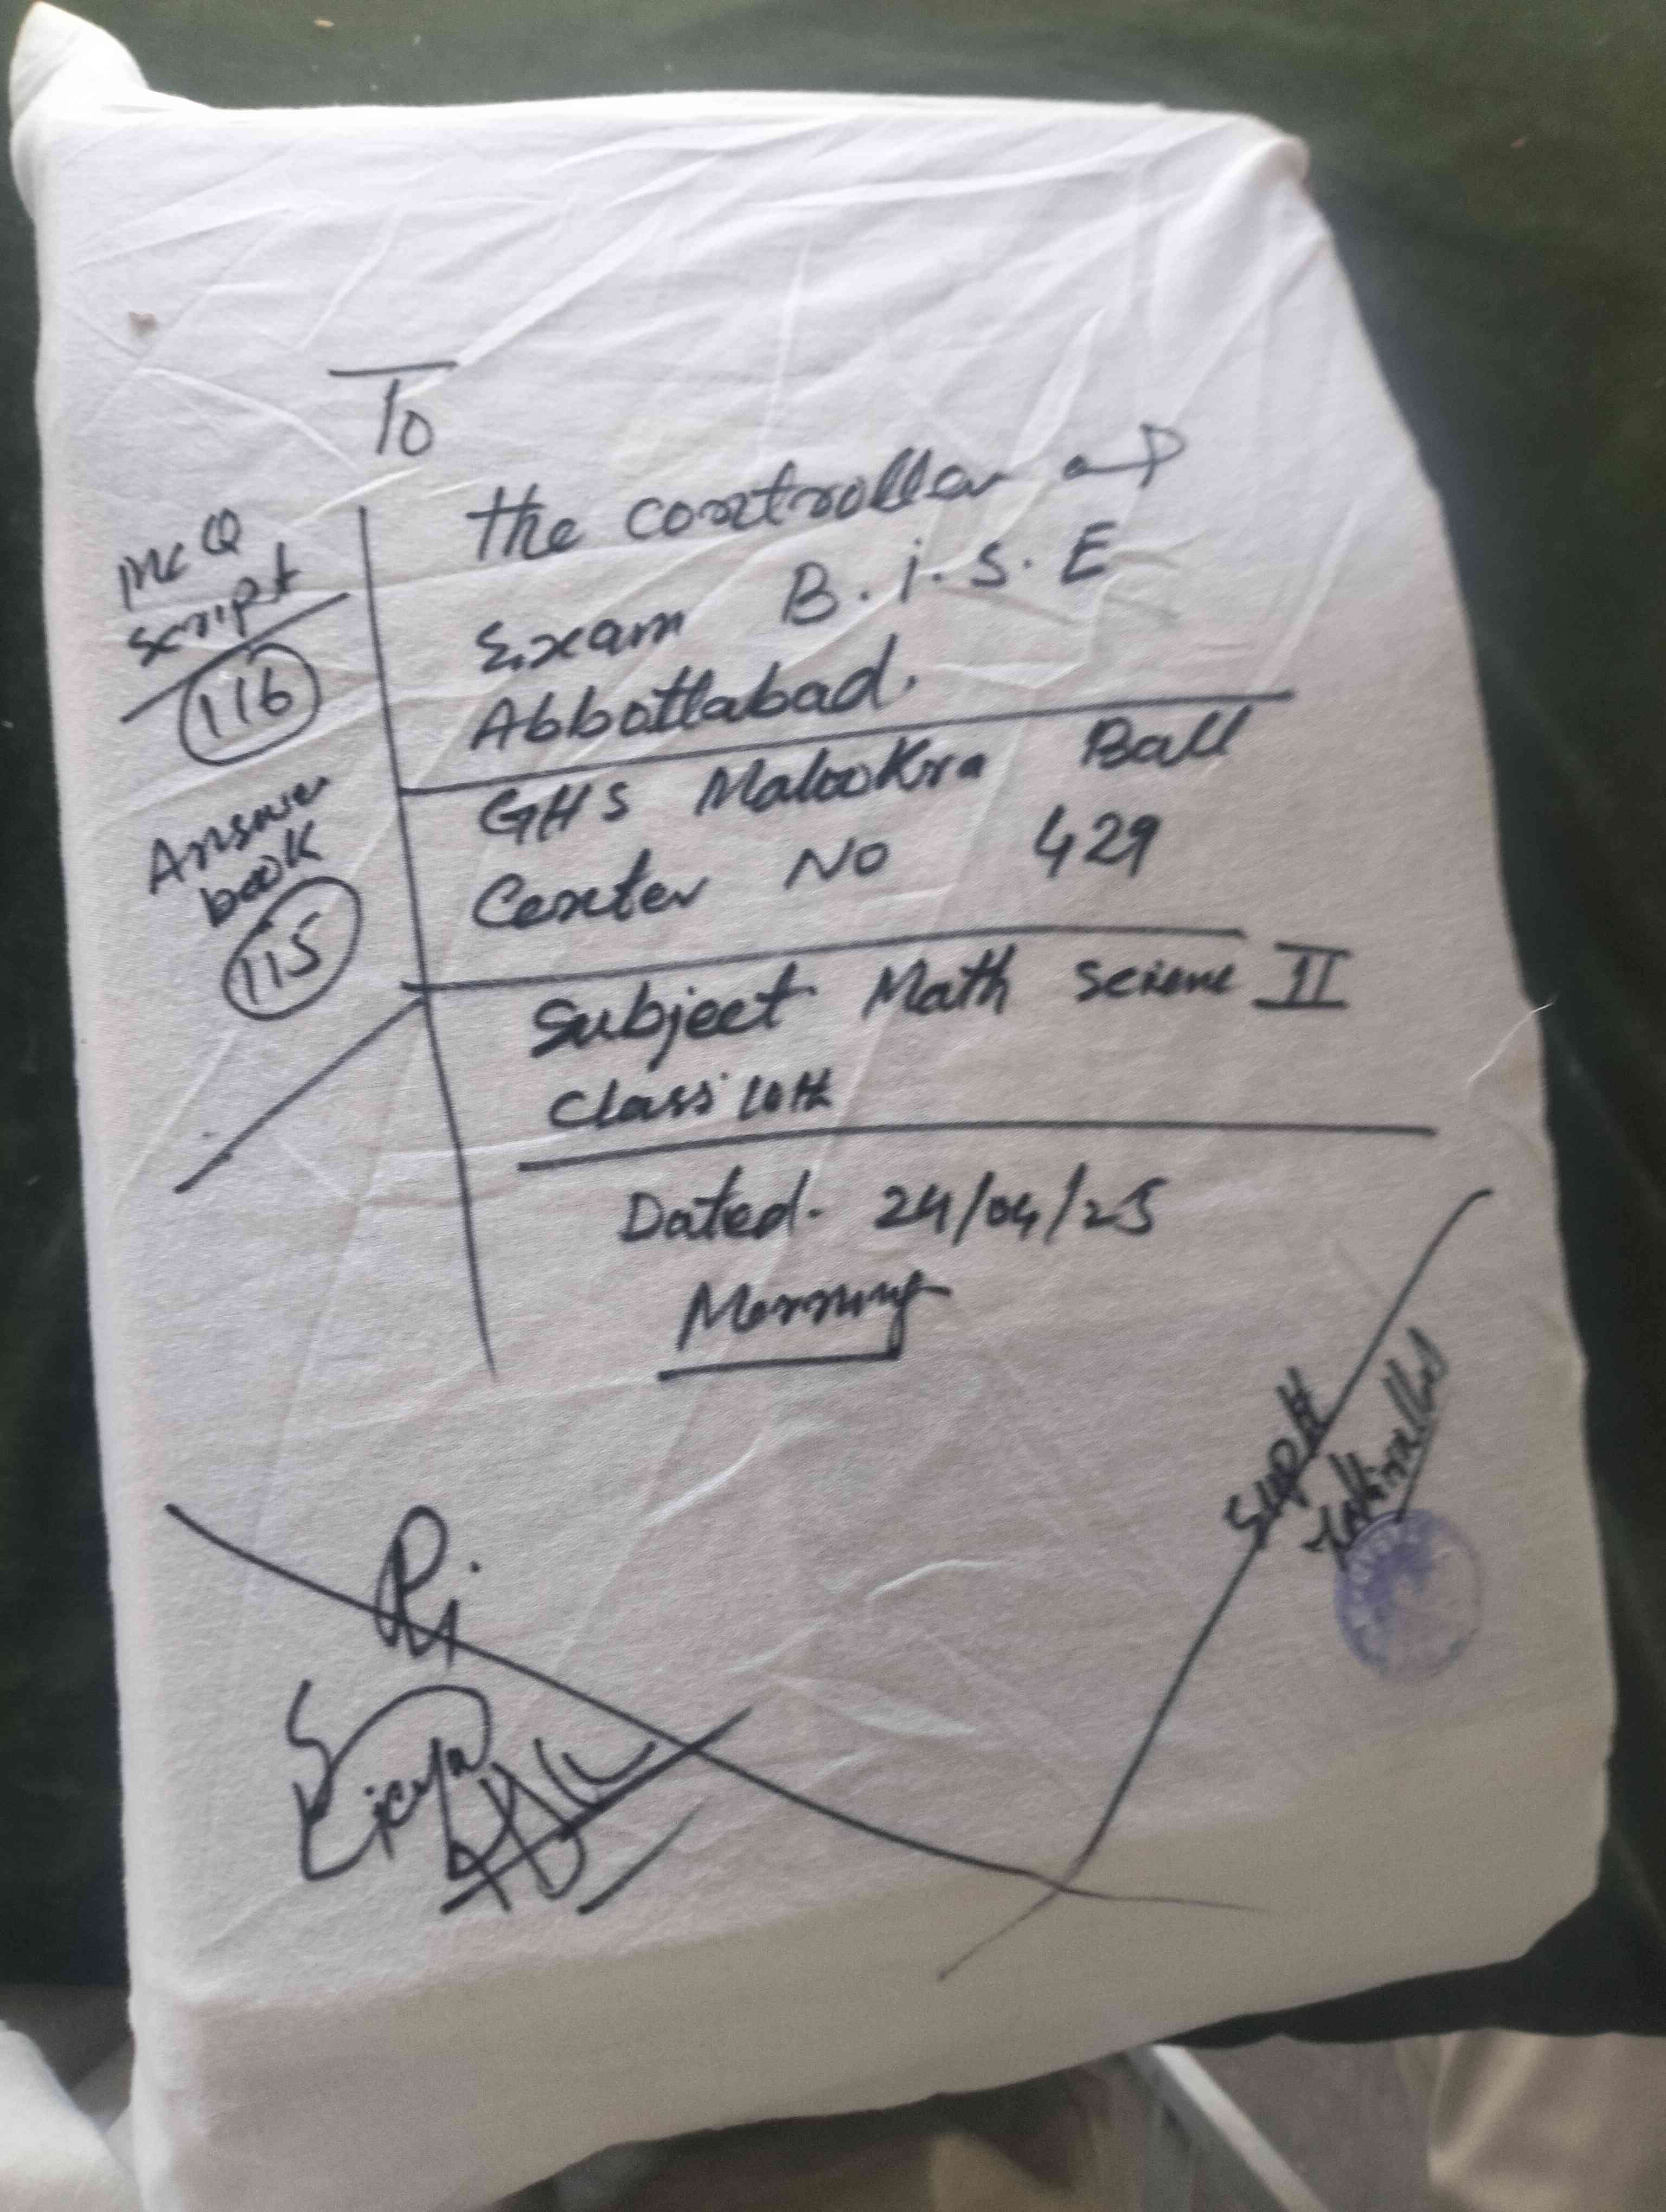 To
The controller of
Exam B.i.s.E
Abbottabad.
GHS Malookra Ball
Center No 429
Subject Math Science II
Class 10th
Dated. 24/04/25
Morning
MCQ
script
116
Answer
book
115
Ri
Supdt